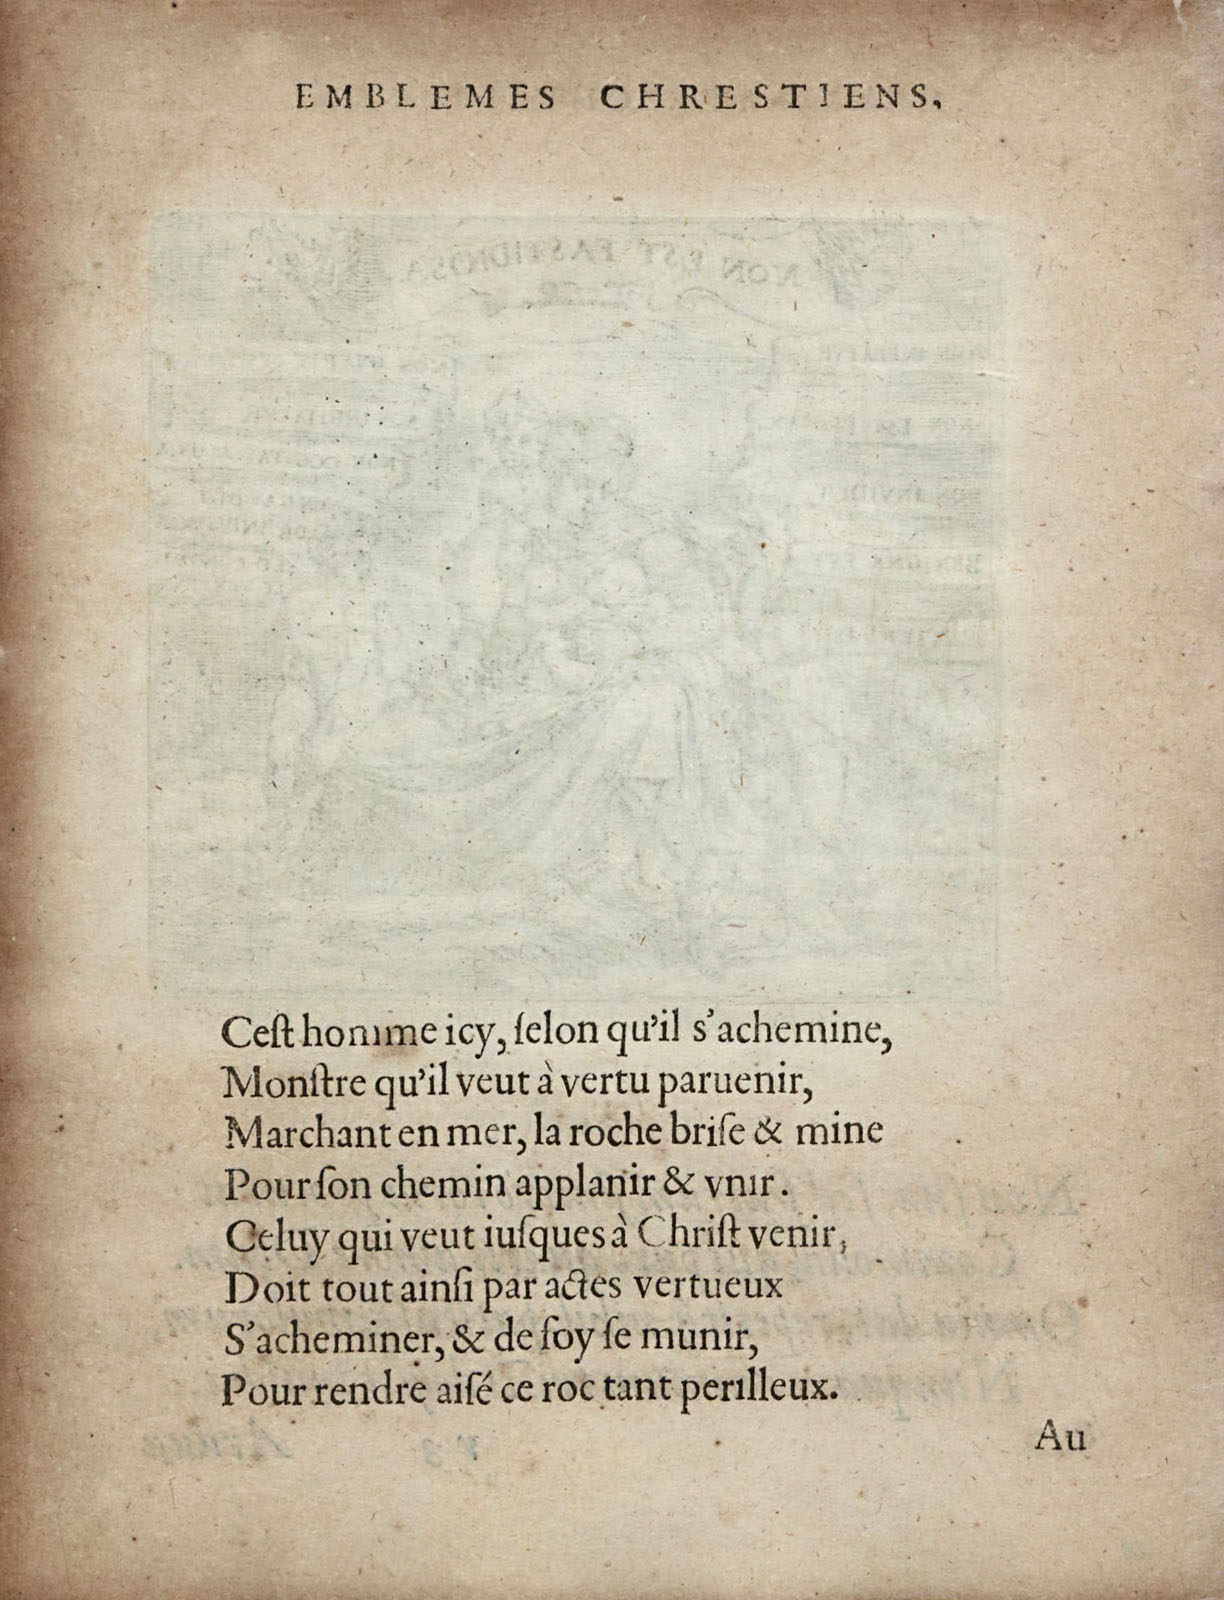 EMBLEMES CHRESTIENS,
NON EST FASTIDIOSA
Ceſt homme icy, ſelon qu'il s'achemine,
Monſtre qu'il veut à vertu paruenir,
Marchant en mer, la roche briſe & mine
Pour ſon chemin applanir & vnir.
Celuy qui veut iuſques à Chriſt venir,
Doit tout ainſi par actes vertueux
S'acheminer, & de ſoy ſe munir,
Pour rendre aiſé ce roc tant perilleux.
Au